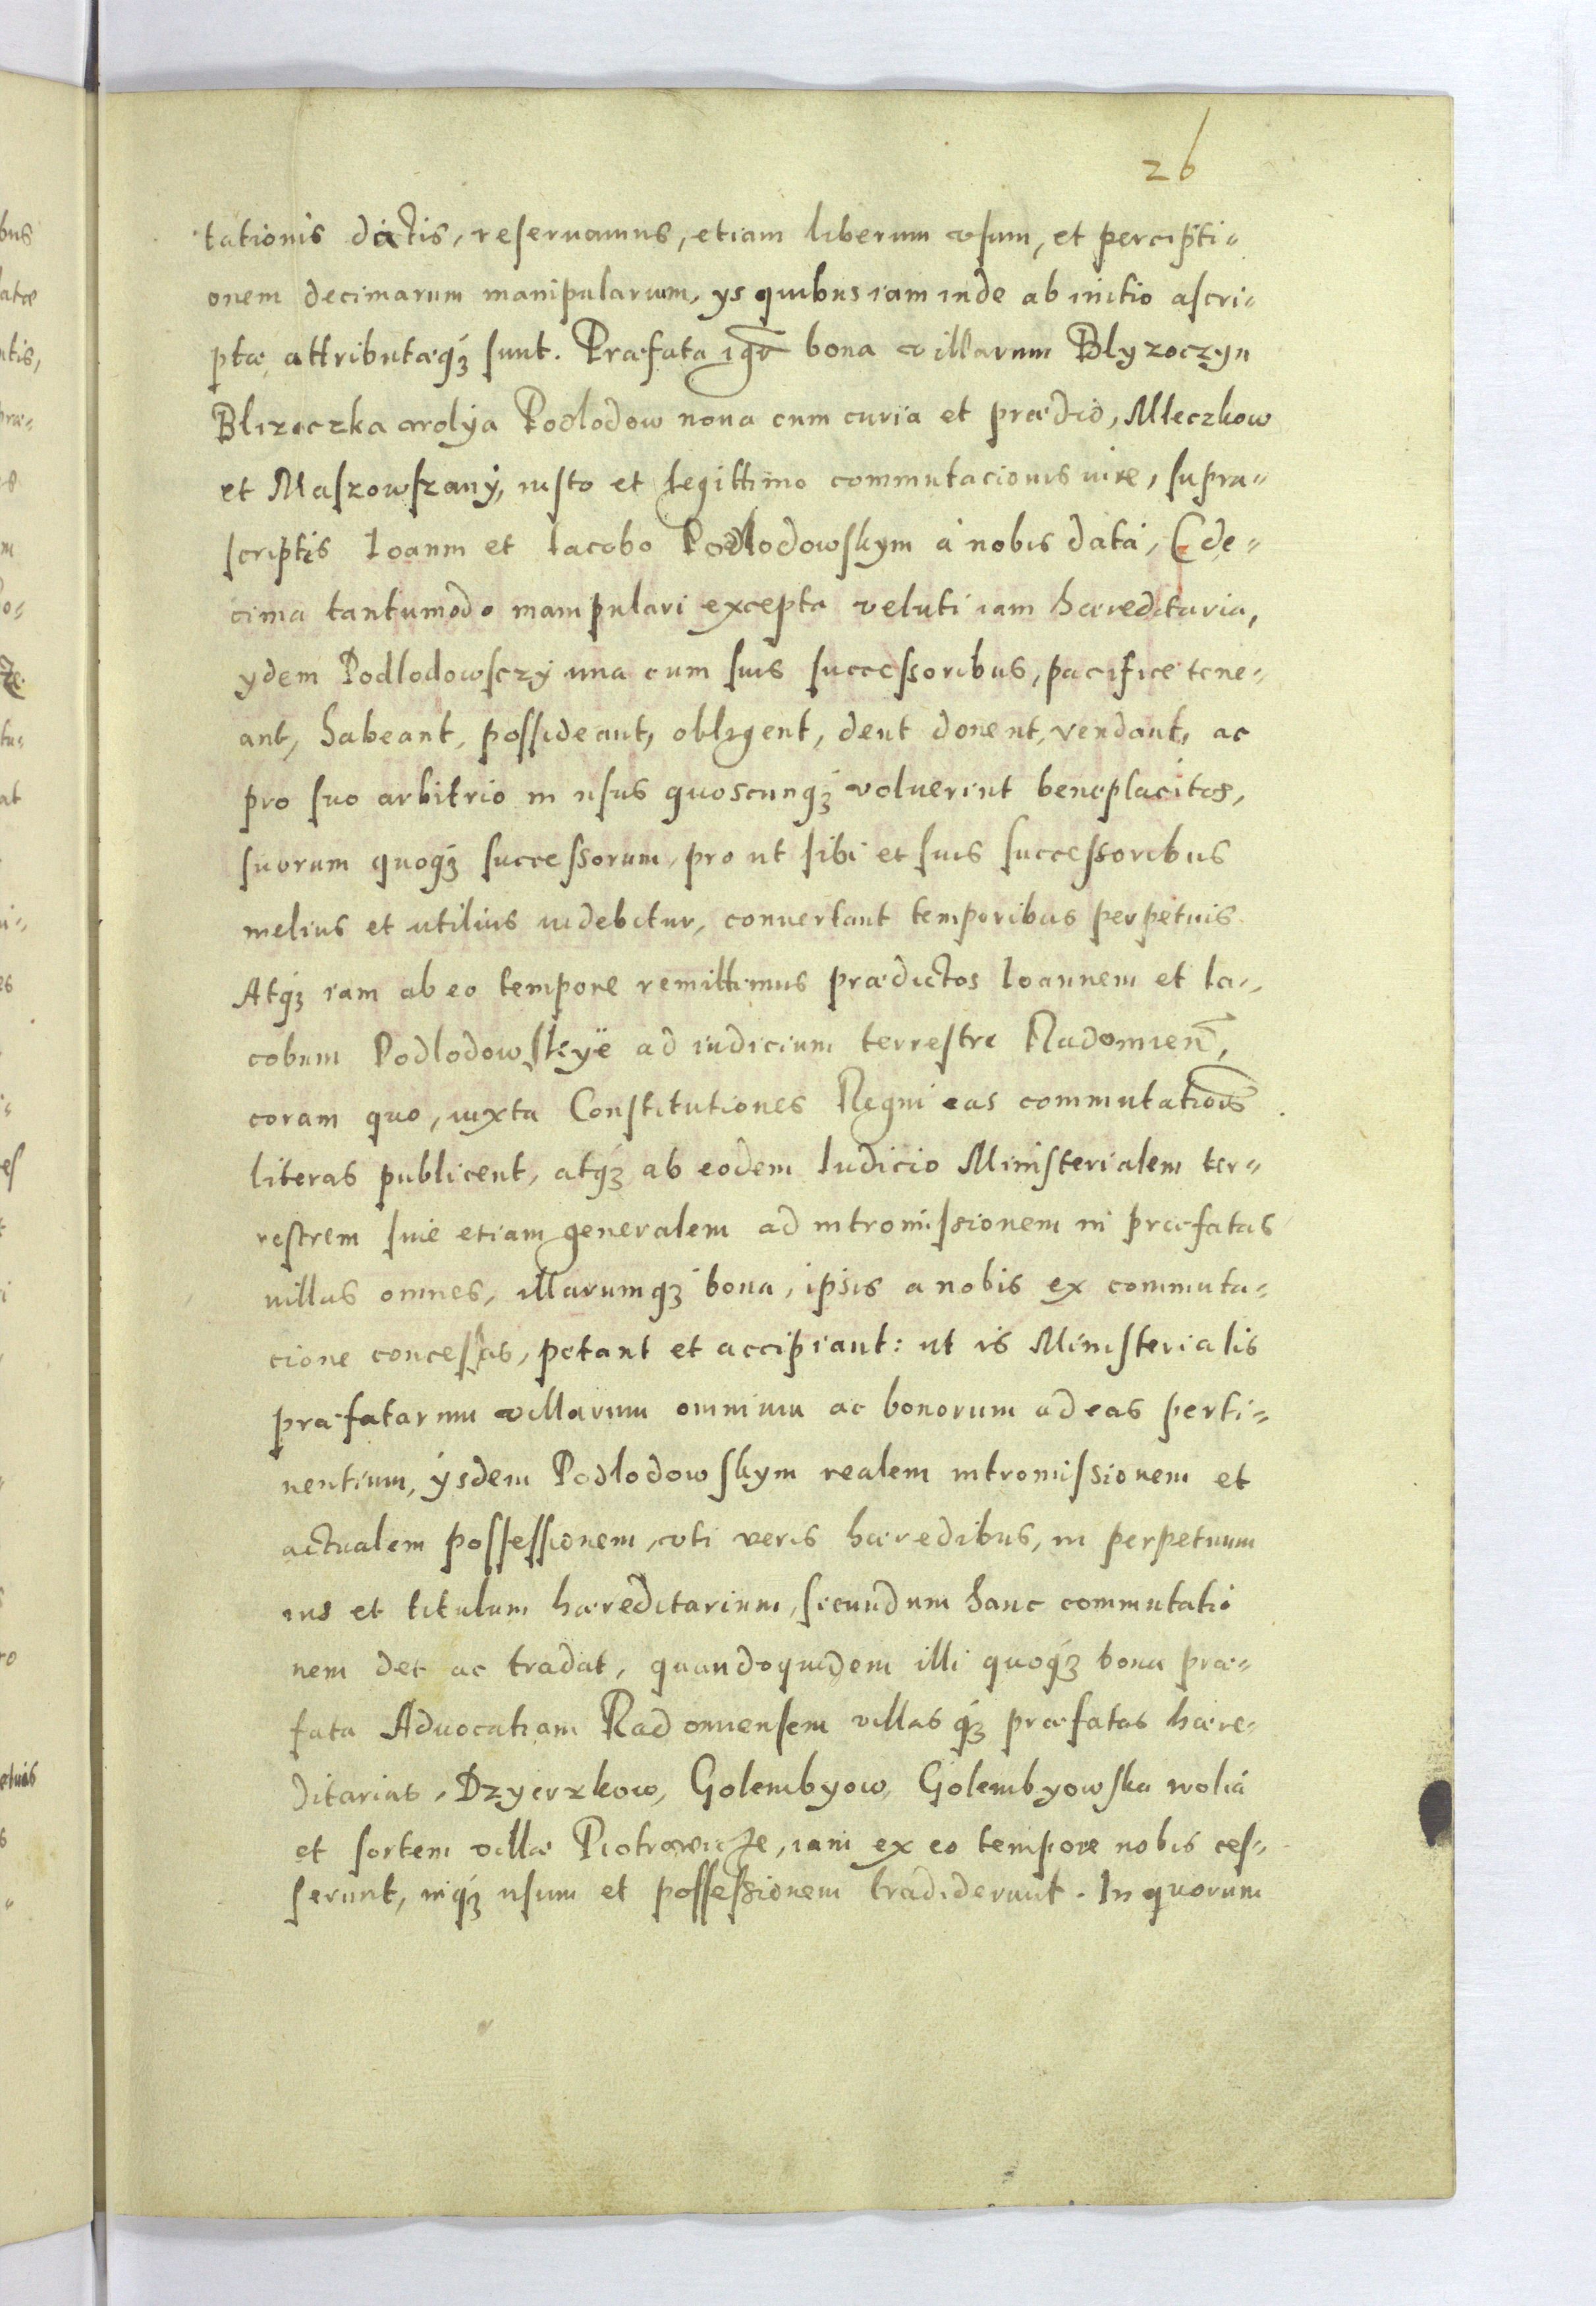 26
tationis dictis, reseruamus, etiam liberum vsum, et percipti=
onem decimarum manipularum, ys quibus iam inde ab initio ascri=
ptæ, attributæq́ꝫ sunt. Præfata igr̃ bona villarum Blyzoczyn
Blizoczka wolya Podlodow noua cum curia et prædio, Mleczkow
et Maszowszany, iusto et legittimo commutacionis iure, supra=
scriptis Ioanni et Iacobo Podlodowskym à nobis data, (de=
cima tantumodo manipulari excepta veluti iam hæreditaria,
ydem Podlodowsczy una cum suis successoribus, pacifice tene=
ant, habeant, possideant, obligent, dent donent, vendant, ac
pro suo arbitrio in usus quoscunq́ꝫ voluerint beneplacitos,
suorum quoq́ꝫ successorum, pro ut sibi et suis successoribus
melius et utilius uidebitur, conuertant temporibus perpetuis.
Atq́ꝫ iam ab eo tempore remittimus prædictos Ioannem et Ia=
cobum Podlodowskyë ad iudicium terrestre Radomien̄,
coram quo, iuxta Constitutiones Regni eas commutatiois̃
literas publicent, atq́ꝫ ab eodem Iudicio Ministerialem ter=
restrem siue etiam generalem ad intromissionem in præfatas
uillas omnes, illarumq́ꝫ bona, ipsis a nobis ex commuta=
cione concessas, petant et accipiant: ut is Ministerialis
præfatarum villarum omnium ac bonorum ad eas perti=
nentium, ysdem Podlodowskym realem intromissionem et
actualem possessionem, vti veris hæredibus, in perpetuum
ius et titulum hæreditarium, secundum hanc commutatio
nem det ac tradat, quandoquidem illi quoq́ꝫ bona præ=
fata Aduocatiam Radomiensem villasq́ꝫ præfatas hære=
ditarias, Dzyerzkow, Golembyow, Golembyowska wolia
et sortem villæ Piotrowicze, iam ex eo tempore nobis ces=
serunt, inq́ꝫ usum et possessionem tradiderunt. In quorum